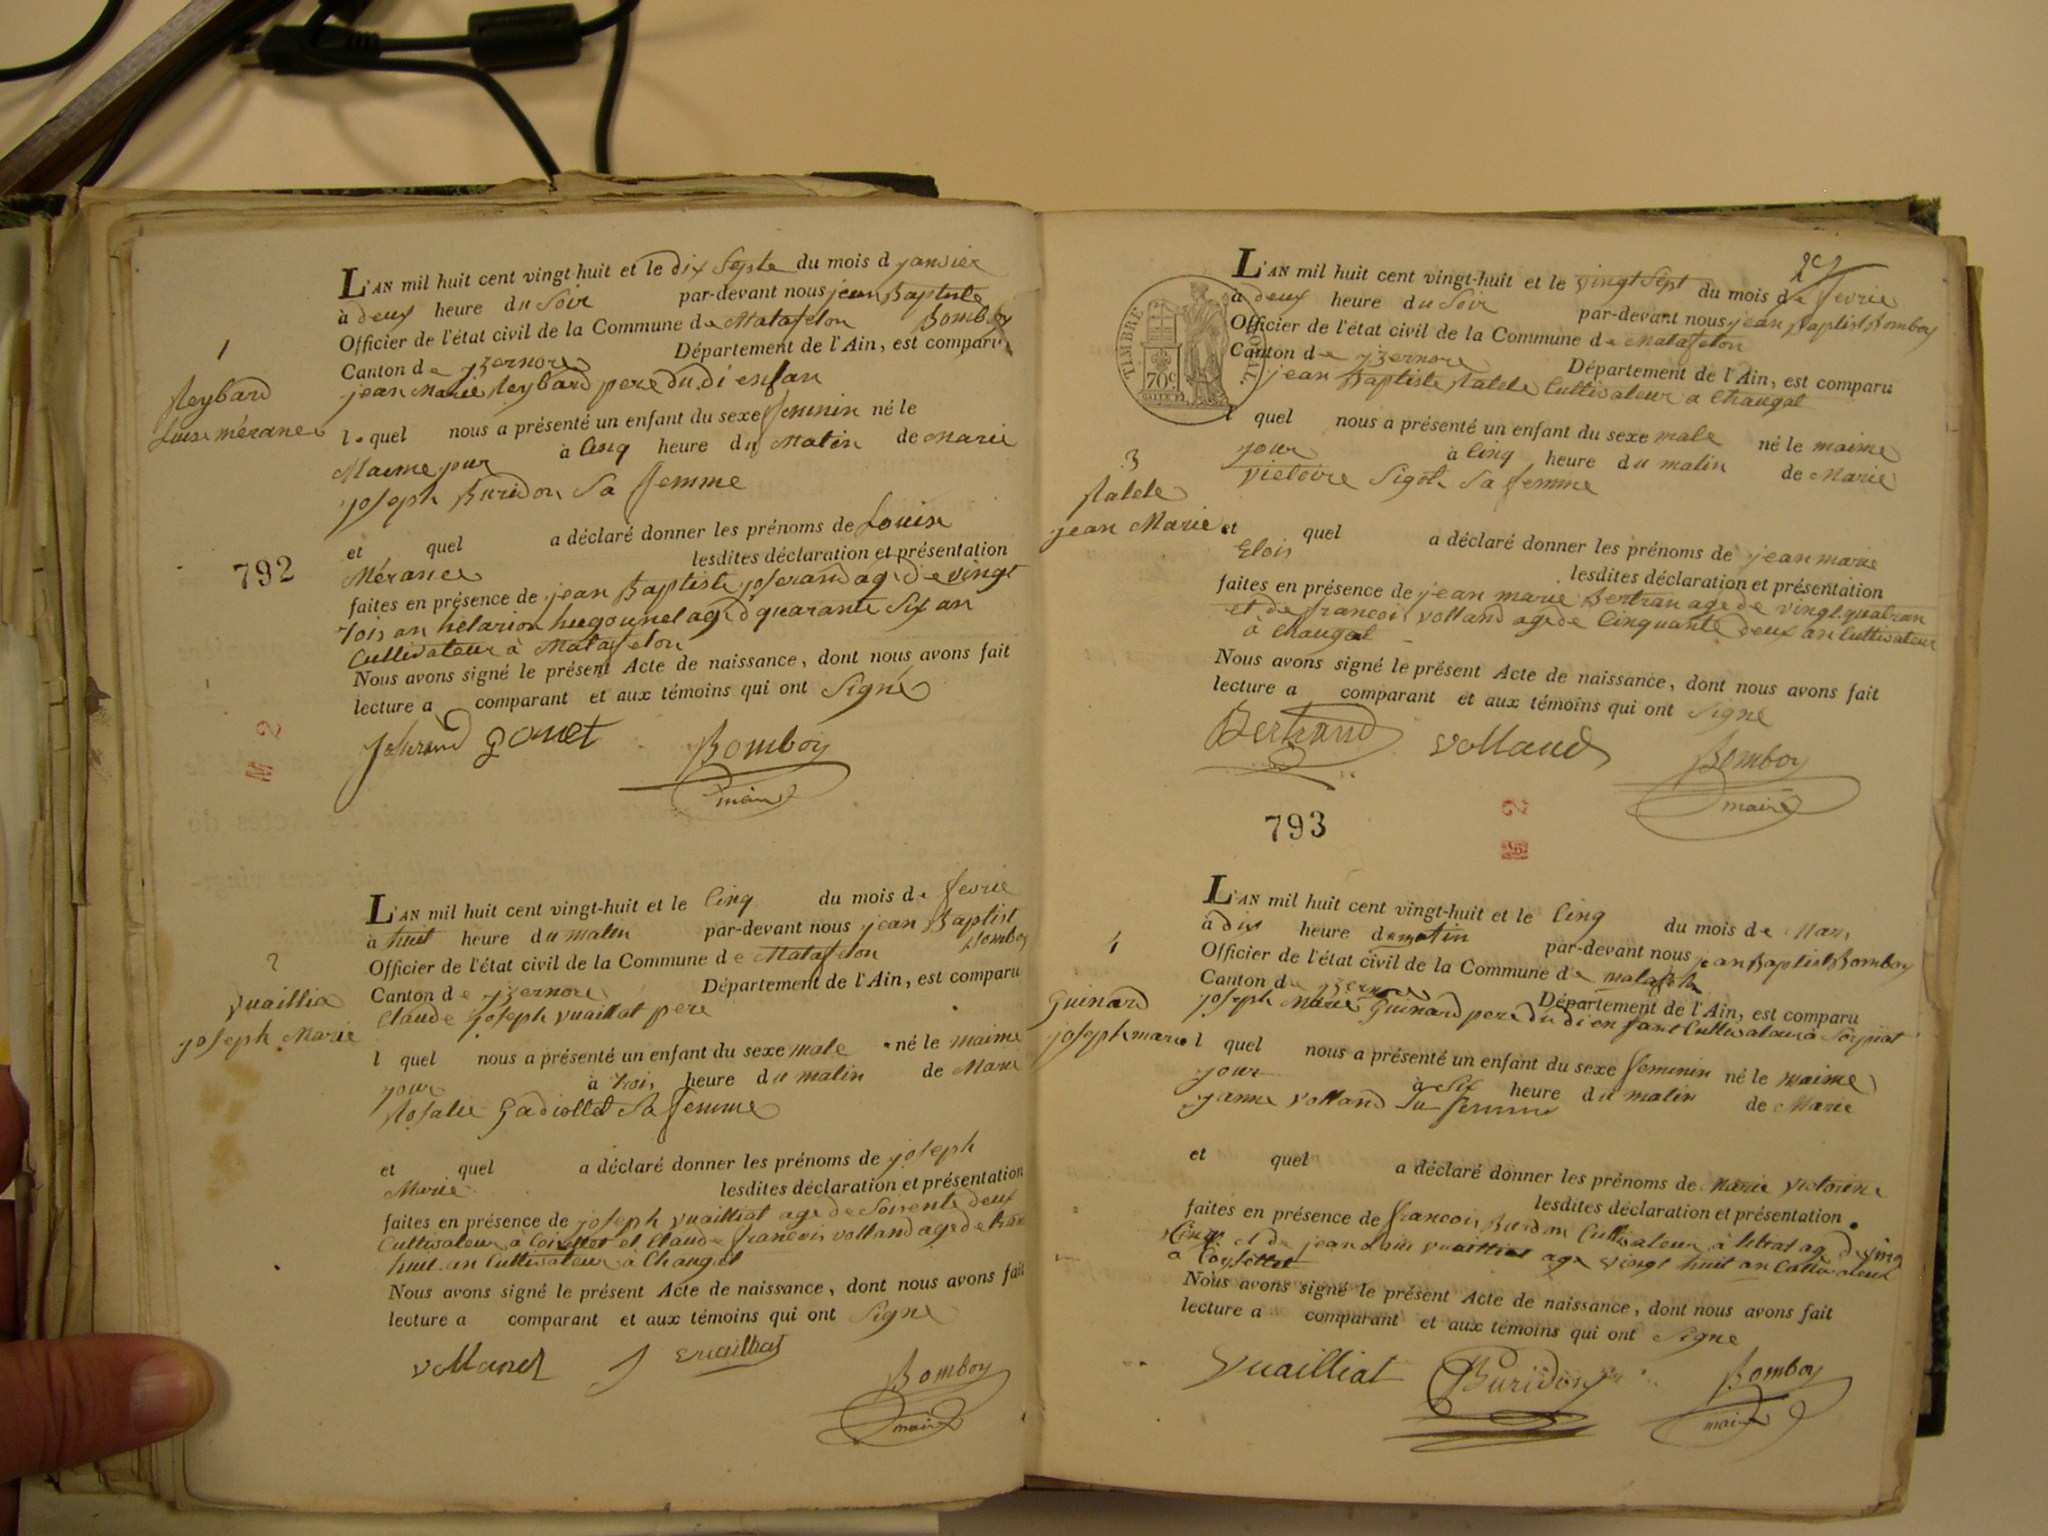 L'AN mil huit cent vingt-huit et le dix Septe du mois d janvier
à deux heure du Soir par-devant nous jean Baptiste
Officier de l'état civil de la Commune de Matafelon Bomboy
Canton de yzernore Département de l'Ain, est comparu
jean Marie Reybard pere du di enfan
le quel nous a présenté un enfant du sexe feminin né le
Maime jour à Cinq heure du Matin de Marie
joseph Buridon Sa femme
et quel a déclaré donner les prénoms de Louise
Mérance lesdites déclaration et présentation
faites en présence de jean Baptiste joserand agé de vingt
rois an helarion hugounet agé d quarante Six an
Cultivateur à Matafelon
Nous avons signé le présent Acte de naissance, dont nous avons fait
lecture a comparant et aux témoins qui ont Signé
Bomboy
maire
1
Reybard
Luise mérance
792
M 2
L'AN mil huit cent vingt-huit et le Cinq du mois de fevrie
à huit heure du matin par-devant nous jean Baptist
Officier de l'état civil de la Commune de Matafelon Bomboy
Canton de yzernore Département de l'Ain, est comparu
Claude joseph vuaillat pere
l quel nous a présenté un enfant du sexe male né le maime
jour à trois heure du matin de Marie
Rosalie Gadiollet Sa femme
et quel a déclaré donner les prénoms de joseph
Marie lesdites déclaration et présentation
faites en présence de joseph vuailliat age de Soisente deux
Cultivateur à et Claude francois volland age de tran
huit an Cultivateur à Changat
Nous avons signé le présent Acte de naissance, dont nous avons fait
lecture a comparant et aux témoins qui ont Signe
volland J vuailliat
Bomboy
maire
2
vuaillia
joseph Marie
TIMBRE ROYAL
70c
L'AN mil huit cent vingt-huit et le vingt Sept du mois de fevrie
à deux heure du Soir par-devant nous jean Baptist Bomboy
Officier de l'état civil de la Commune de Matafelon
Canton de yzernore Département de l'Ain, est comparu
jean Baptiste Cultivateur a Changat
l quel nous a présenté un enfant du sexe male né le maime
jour à Cinq heure du matin de Marie
victoire Sigot Sa femme
et quel a déclaré donner les prénoms de jean marie
Elois lesdites déclaration et présentation
faites en présence de jean marie Bertran age de vingt quatr an
et de francois volland age de Cinquante deux an Cultivateur
à Changat
Nous avons signé le présent Acte de naissance, dont nous avons fait
lecture a comparant et aux témoins qui ont Signe
Bertrand volland
Bomboy
maire
3
jean Marie
793
2
L'AN mil huit cent vingt-huit et le Cinq du mois de Mars
à dix heure du matin par-devant nous jean Baptist Bomboy
Officier de l'état civil de la Commune de matafelon
Canton de yzernore Département de l'Ain, est comparu
joseph Marie Guinard pere du di enfant Cultivateur à
l quel nous a présenté un enfant du sexe feminin né le maime
jour à Six heure du matin de Marie
janne volland Sa femme
et quel a déclaré donner les prénoms de Marie victoire
lesdites déclaration et présentation
faites en présence de francois Buridon Cultivateur à age de ving
Cinq et de jean vuailliat age vingt huit an Cultivateur
a
Nous avons signé le présent Acte de naissance, dont nous avons fait
lecture a comparant et aux témoins qui ont Signe
vuailliat Buridon
Bomboy
maire
4
Guinard
joseph marie